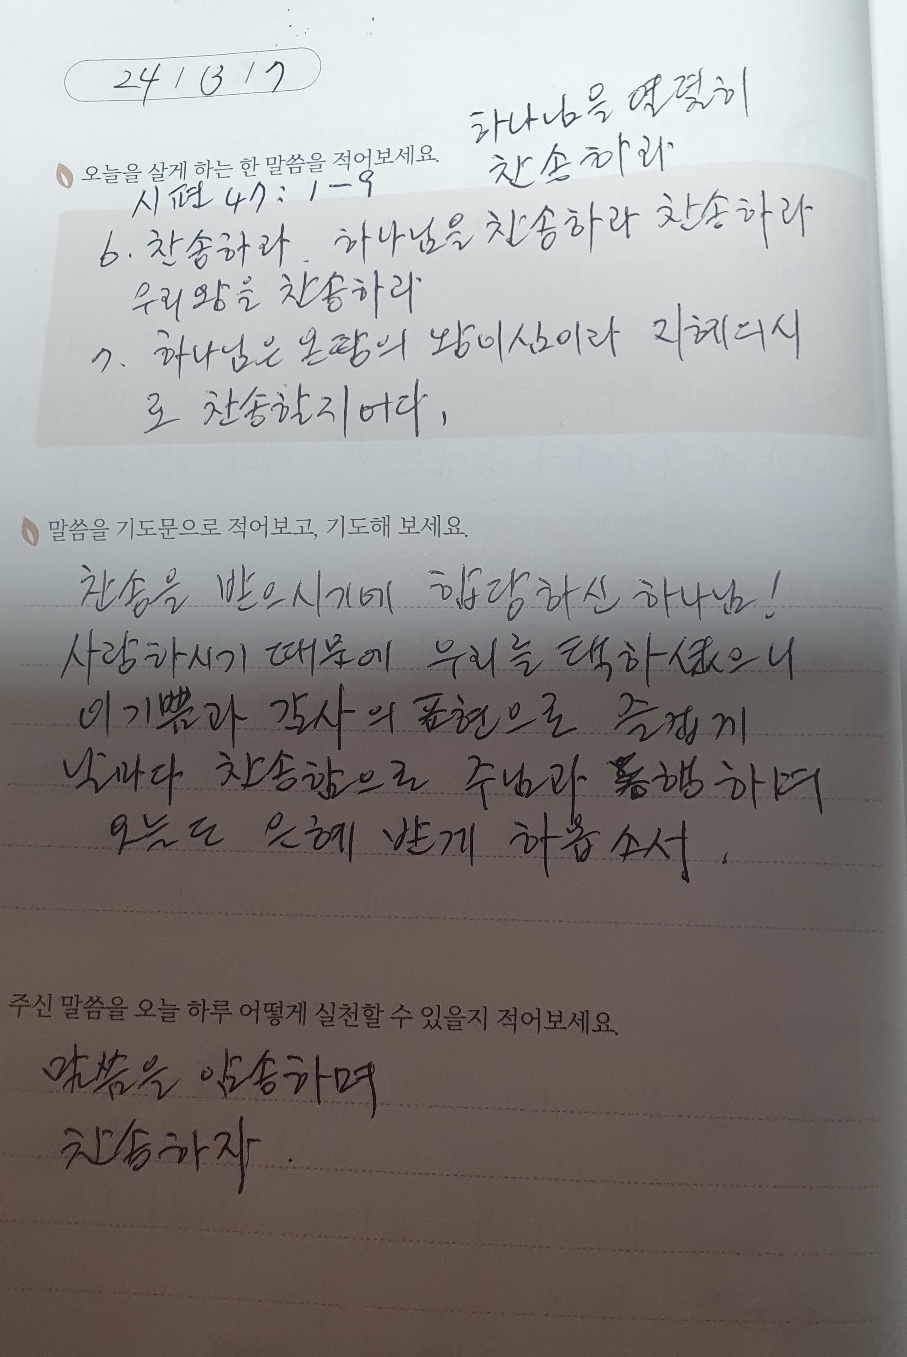 24 / 3 / 7
하나님을 열렬히
찬송하라
오늘을 살게 하는 한 말씀을 적어보세요.
시편 47: 1-9
6. 찬송하라. 하나님을 찬송하라 찬송하라
우리 왕을 찬송하라
7. 하나님은 온 땅의 왕이심이라 지혜의 시
로 찬송할지어다,
말씀을 기도문으로 적어보고, 기도해 보세요.
찬송을 받으시기에 합당하신 하나님!
사랑하시기 때문에 우리를 택하셨으니
이 기쁨과 감사의 표현으로 즐겁게
날마다 찬송함으로 주님과 동행하며
오늘도 은혜 받게 하옵소서.
주신 말씀을 오늘 하루 어떻게 실천할 수 있을지 적어보세요.
말씀을 암송하며
찬송하자.